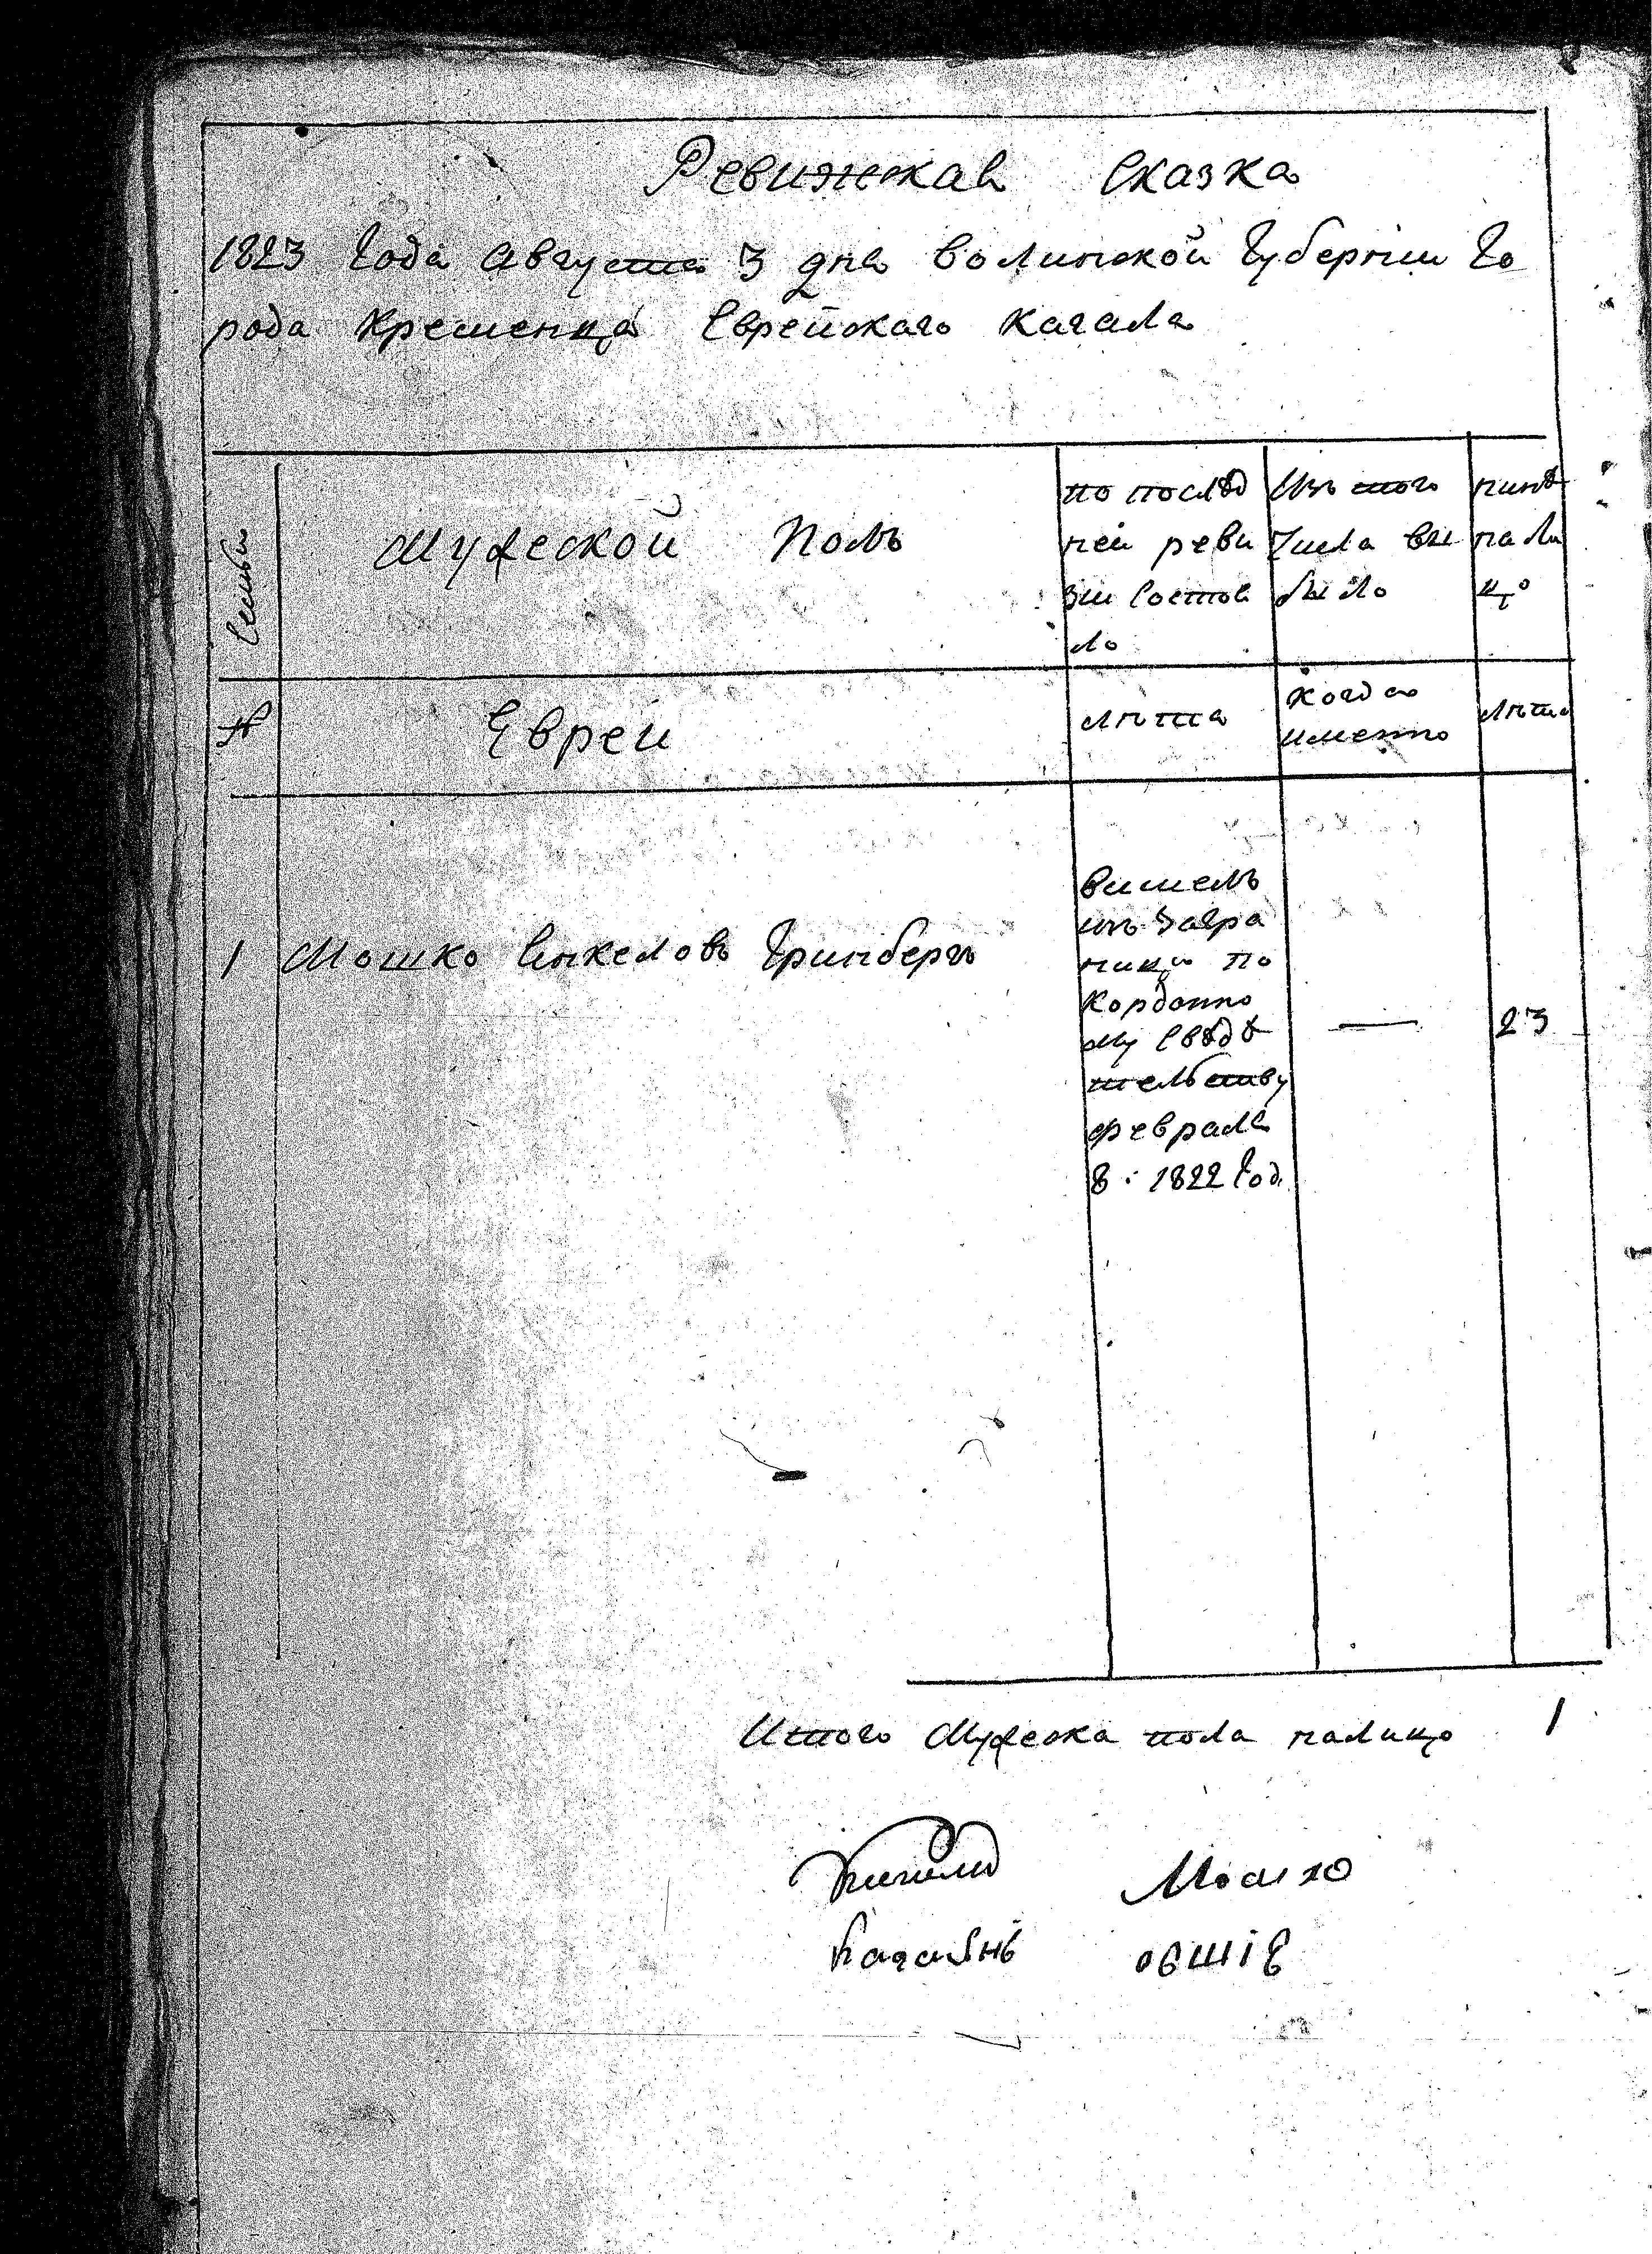 Ревижская Сказка
1823 Года Августа 3 дня Волинской Губернии Го
рода Кременца Еврейскаго Кагала
Семьи
Мужеской Полъ
по послѣд
ней реви
зіи состоя
ло
Изъ того
числа вы
было
нинѣ
на ли
цо
№
Евреи
лѣта
Когда
именно
лѣта
1 Мошко Янкеловъ Гринбергъ
вишелъ
изъ Загра
ници по
Кордонно
му Свѣдѣ
тельству
февраля
8 : 1822 Год
—
23
Итого Мужеска пола налицо 1